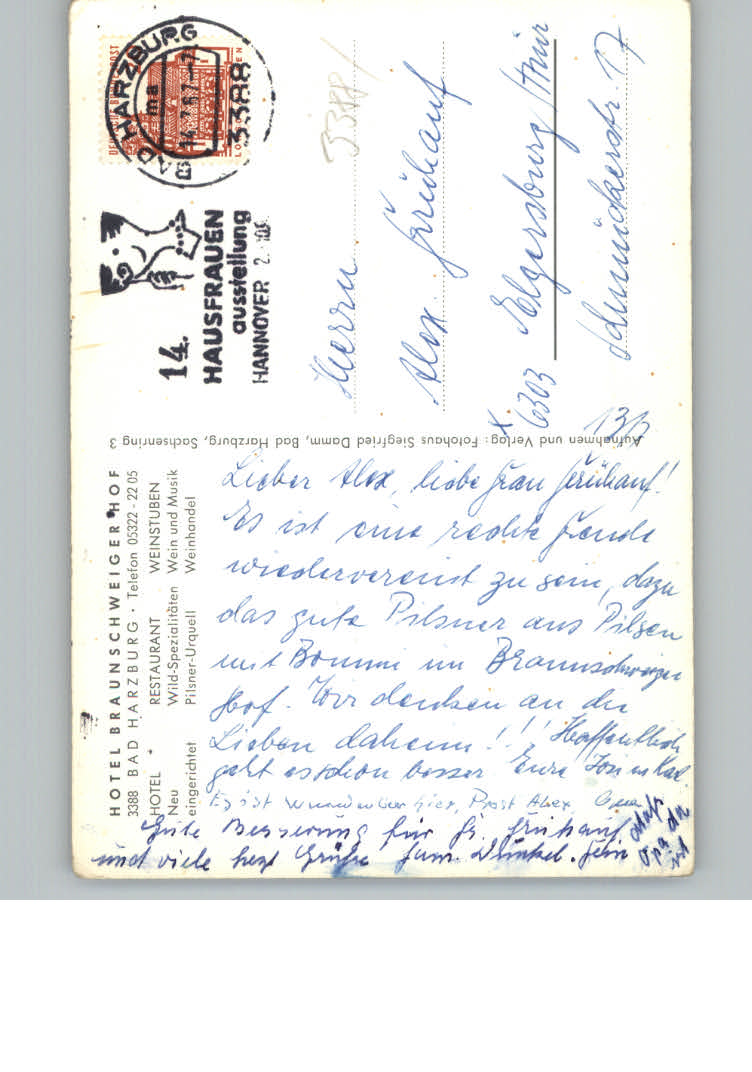 HOTEL BRAUNSCHWEIGER HOF
3388 BAD HARZBURG · Telefon 05322 - 22 05
HOTEL * RESTAURANT WEINSTUBEN
Neu Wild-Spezialitäten Wein und Musik
eingerichtet Pilsner-Urquell Weinhandel
Lieber Alex, liebe Frau Frühauf!
Es ist eine rechte Freude
wiedervereint zu sein, dazu
das gute Pilsner aus Pilsen
mit Bommi im Braunschweiger
Hof. Wir denken an die
Lieben daheim!!! Hoffentlich
geht es schon besser Eure
Es ist wunderbar hier, Prost Alex Oma
Gute Besserung für Fr. Frühauf
und viele herzl Grüße Fam. Dünkel. fein
daß
Opa da
ist
Aufnahmen und Verlag: Fotohaus Siegfried Damm, Bad Harzburg, Sachsenring 3
DEUTSCHE BUNDESPOST
BAD HARZBURG
ma
14.2.67
3388
14.
HAUSFRAUEN
ausstellung
HANNOVER
3388
Herrn
Alex Frühauf
x 6303 Elgersburg/Thür
Schmückerstr. 17